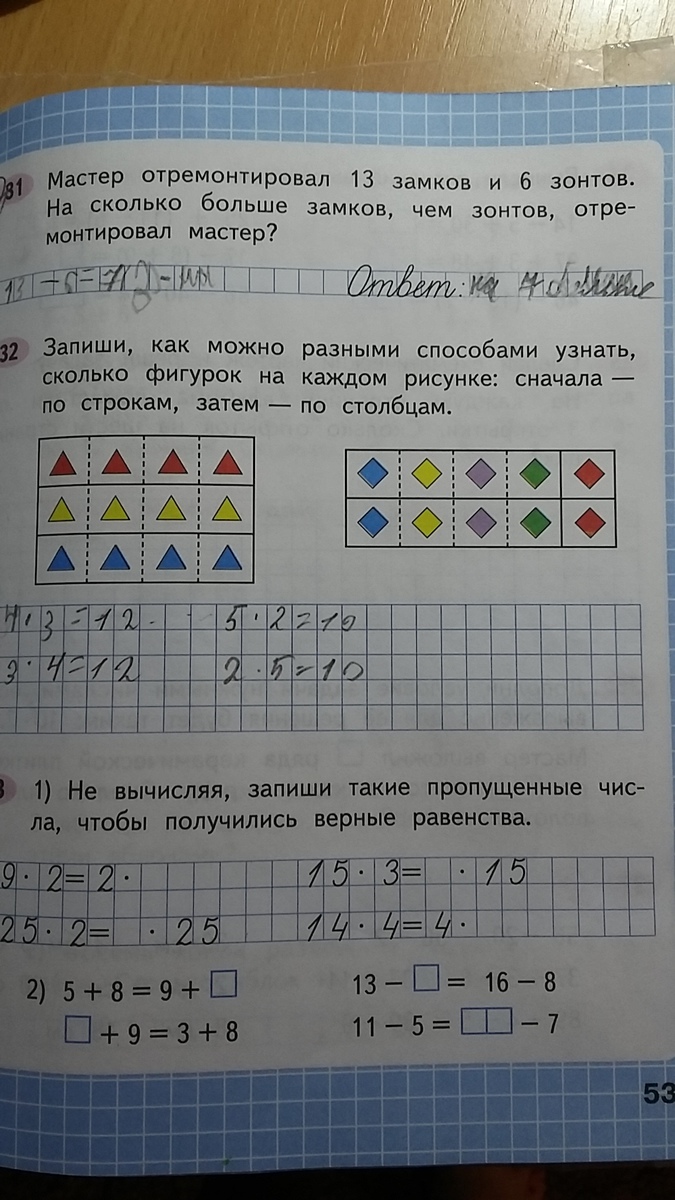 31 Мастер отремонтировал 13 замков и 6 зонтов.
На сколько больше замков, чем зонтов, отре-
монтировал мастер?
13 - 6 = 7 Ответ: на 7
32 Запиши, как можно разными способами узнать,
сколько фигурок на каждом рисунке: сначала —
по строкам, затем — по столбцам.
4 · 3 = 12 5 · 2 = 10
3 · 4 = 12 2 · 5 = 10
3 1) Не вычисляя, запиши такие пропущенные чис-
ла, чтобы получились верные равенства.
9 · 2 = 2 · 15 · 3 = · 15
25 · 2 = · 25 14 · 4 = 4 ·
2) 5 + 8 = 9 + □ 13 − □ = 16 − 8
□ + 9 = 3 + 8 11 − 5 = □□ − 7
53